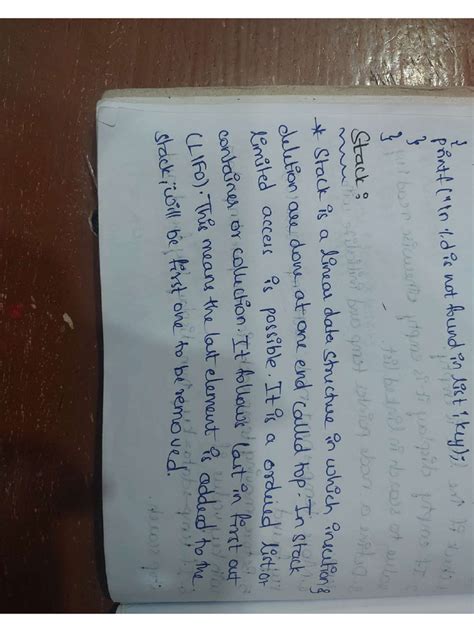 {
printf("\n %d is not found in list", key);
}
}
Stack:
* Stack is a linear data structure in which insertion &
deletion are done at one end called top. In stack
limited access is possible. It is a ordered list or
container or collection. It follows last in first out
(LIFO). This means the last element is added to the
stack, will be first one to be removed.